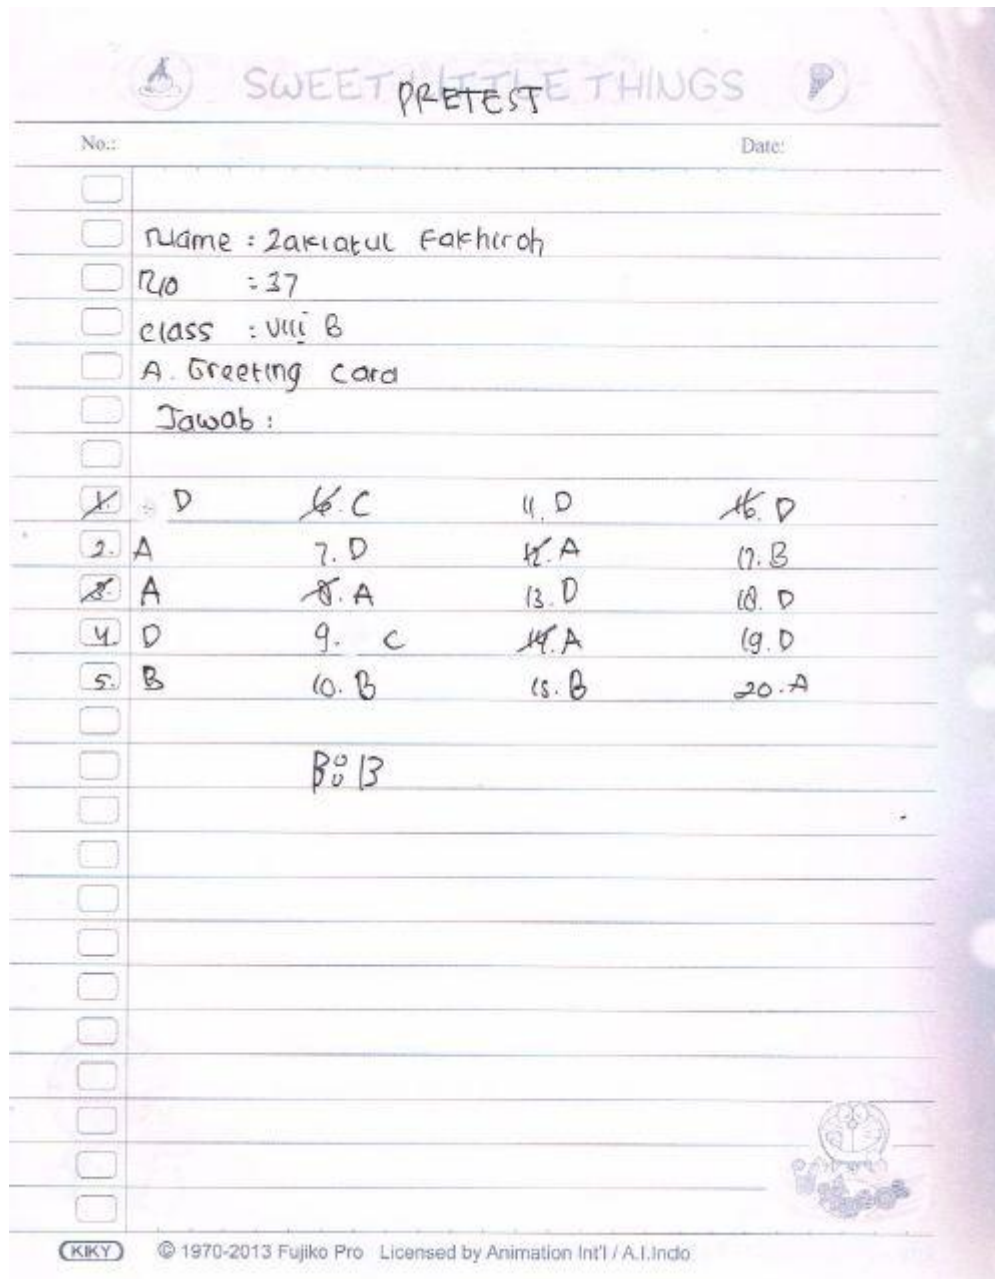 SWEET LITTLE THINGS
PRETEST
No.: Date:
Name : Zakiatul Fakhiroh
No : 37
class : VIII B
A. Greeting card
Jawab :
1. D 6. C 11. D 16. D
2. A 7. D 12. A 17. B
3. A 8. A 13. D 18. D
4. D 9. C 14. A 19. D
5. B 10. B 15. B 20. A
B : 13
KIKY © 1970-2013 Fujiko Pro Licensed by Animation Int'l / A.I.Indo